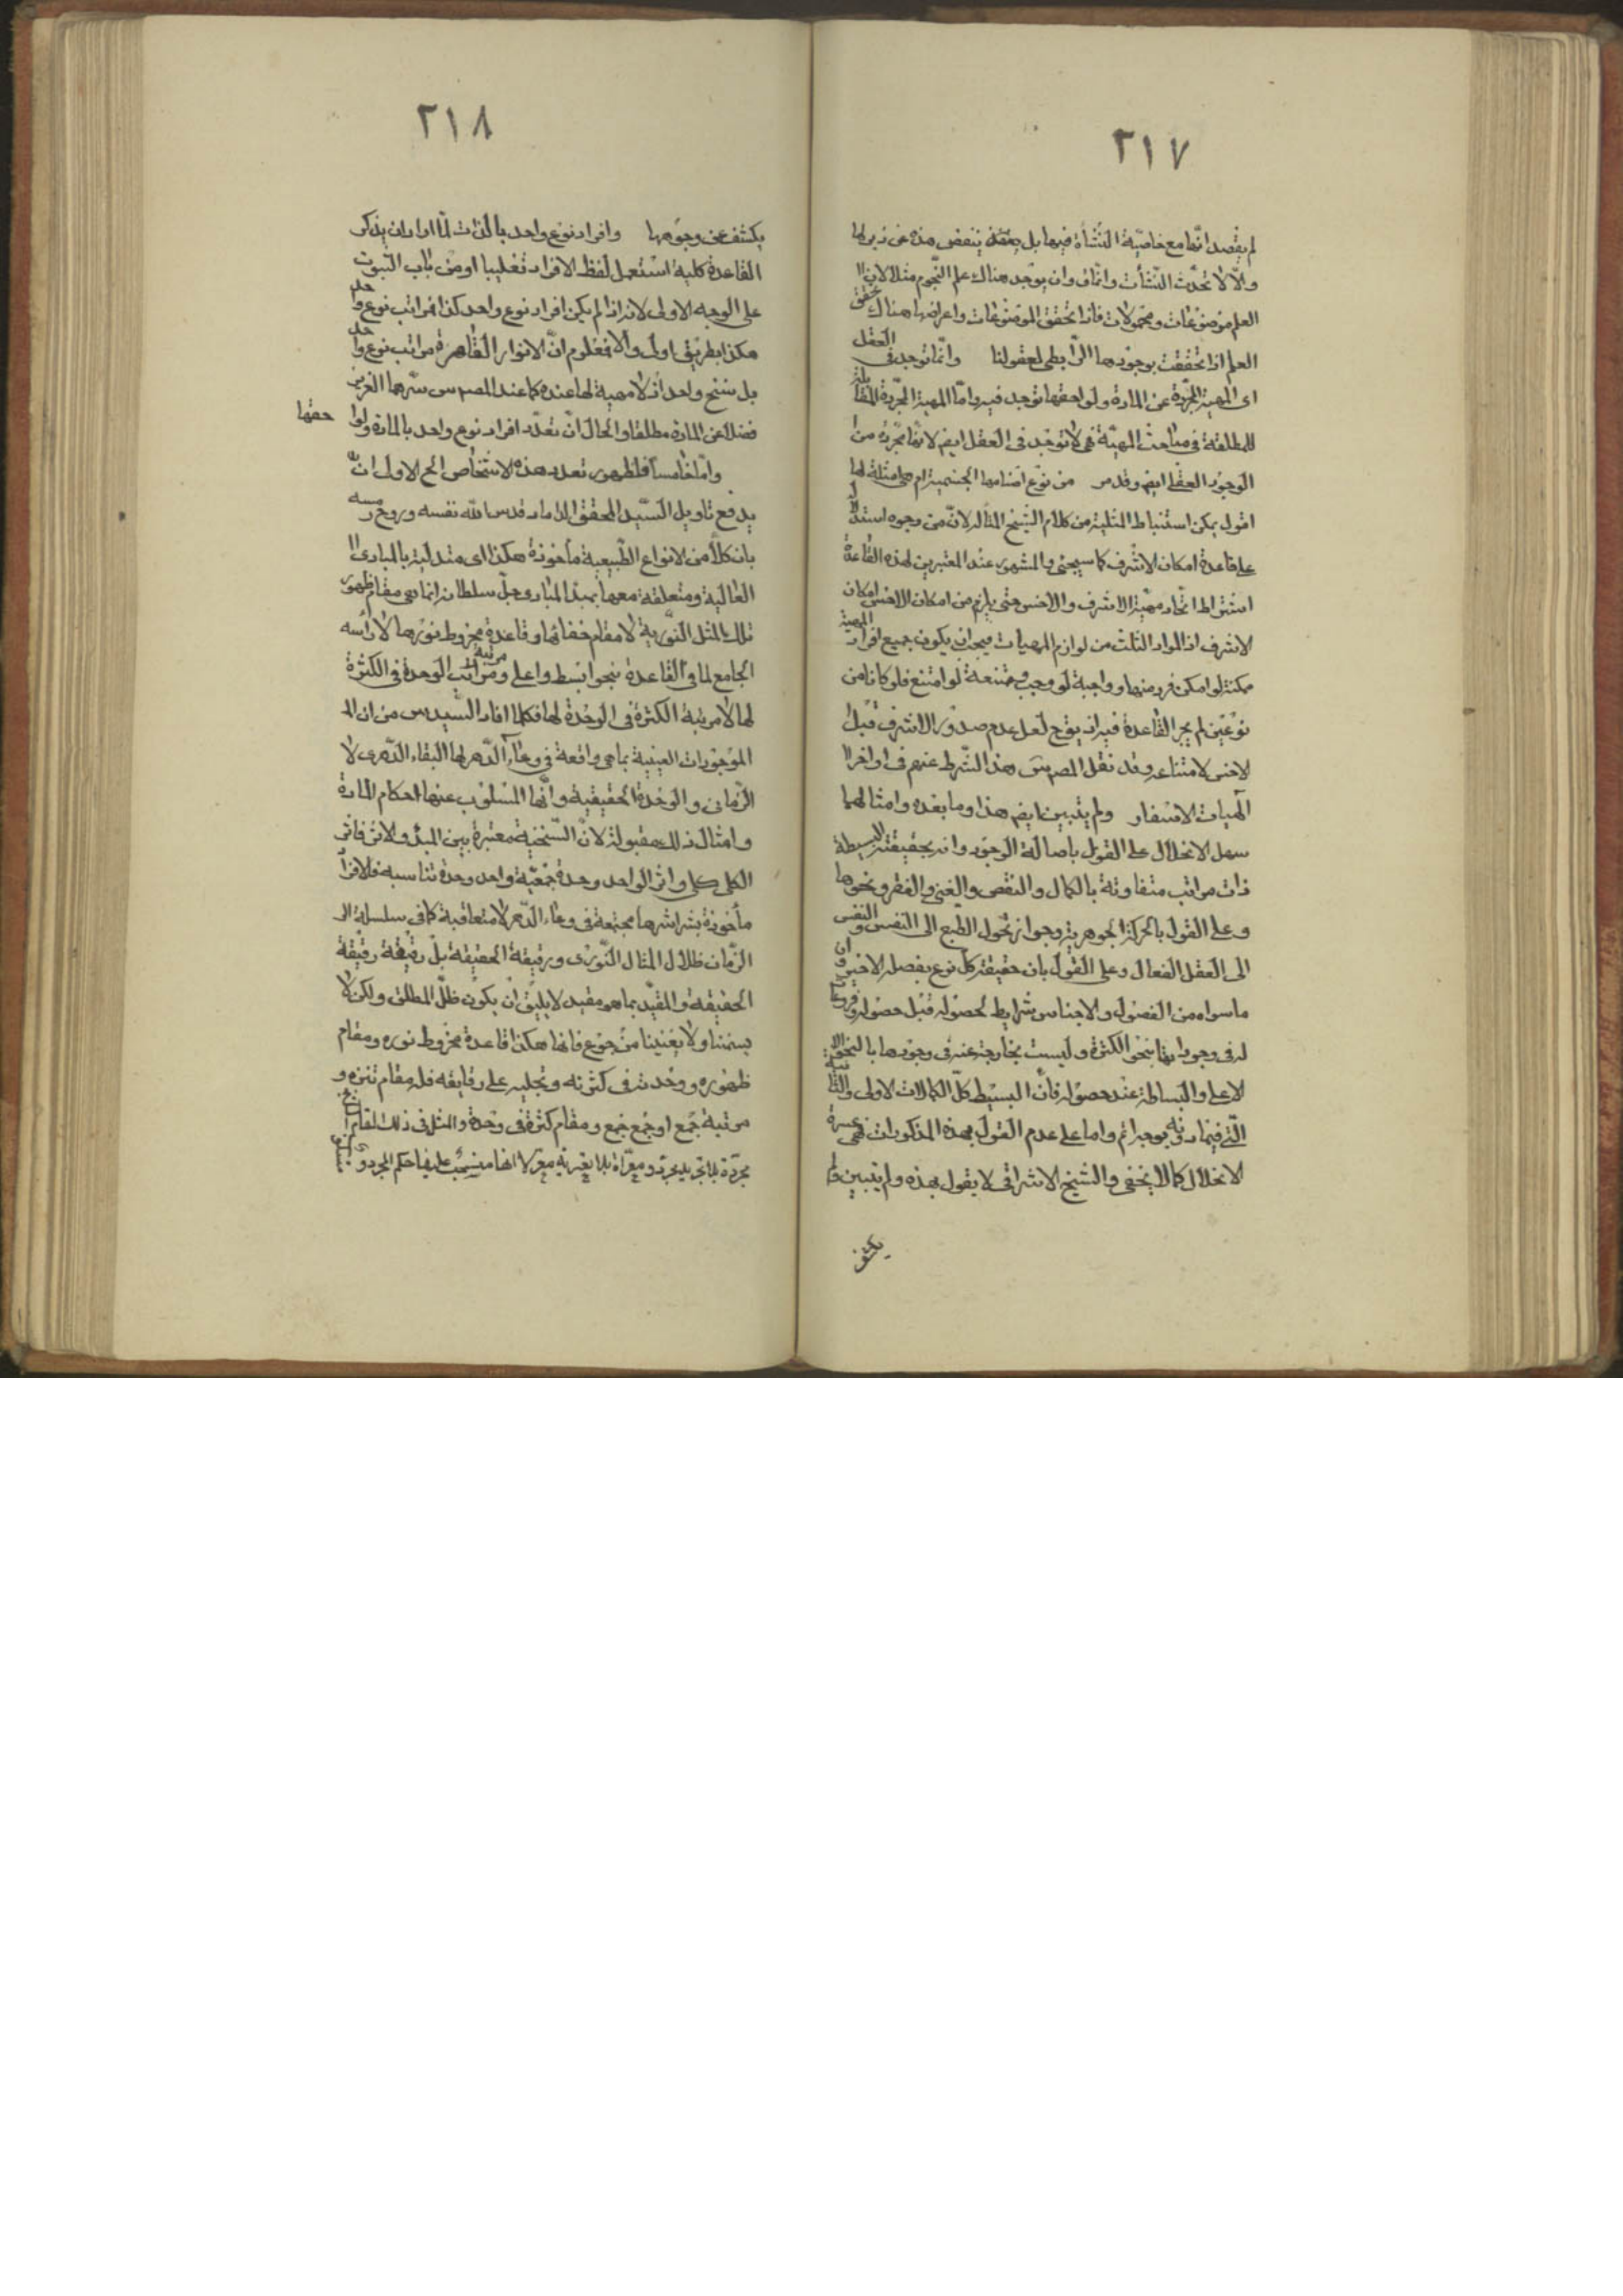 ٢١٧
لم يقصد انها مع خاصية النشأة فيها بل بعقله ينفض هذه عن ذيولها
والا لاتحدت النشأت واتفاق وان يوجد هناك علم النجوم مثلا لان ا
العلم موضوعات ومحمولات فاذا تحقق الموضوعات واعراضها هناك تحقق
العلم اذا تحققت بوجودها الرابطي لعقولنا وانما توجد في العقل
اى المهية المجردة عن المادة ولواحقها توجد فيه واما المهية المجردة المقابلة
للمطلقة في مباحث المهية فهى لا توجد فى العقل ايضا لانها مجردة من
الوجود العقلى ايضا وقد مر من نوع اصنامها الجسمية ام هى مثلة لها
اقول يمكن استنباط المثلية من كلام الشيخ المتأله لان من وجوه استدلا
على قاعدة امكان الاشرف كما سيجئ والمشهور عند المعتبرين لهذه القاعدة
اشتراط اتحاد مهية الاشرف والاخس حتى يلزم من امكان الاخس امكان
الاشرف اذ المواد الثلث من لوازم المهيات فيجب ان يكون جميع افراد المهية
ممكنة لو امكن فرد منها وواجبة لو وجب وممتنعة لو امتنع فلو كانا من
نوعين لم يجر القاعدة فيه اذ يقح لعل عدم صدور الاشرف قبل
الاخس لامتناعه وقد نقل المص س هذا الشرط عنهم فى اواخر ا
الهيات الاسفار ولم يتبين ايض هذا وما بعده وامثالهما
سهل الانحلال على القول باصالة الوجود وانه بحقيقته البسيطة
ذات مراتب متفاوتة بالكمال والنقص والغنى والفقر ونحوها
وعلى القول بالحركة الجوهرية وجواز تحول الطبع الى النفس والنفس
الى العقل الفعال وعلى القول بان حقيقة كل نوع بفصله الاخير وان
ماسواه من الفصول والاجناس شرايط لحصوله قبل حصوله وفروعا
له فى وجوداتها بنحو الكثرة وليست بخارجة عنه فى وجودها بالنحو
الاعلى والبساطة عند حصوله فان البسيط كل الكمالات الاولى والثانية
التى فيما دونه بوجه اتم واما على عدم القول بهذه المذكورات فهى عسرة
الانحلال كما لا يخفى والشيخ الاشراقى لا يقول بهذه ولم يتبين
يكشف
٢١٨
يكشف عن وجوهها وافراد نوع واحد بالذات لما اراد ان يذكر
القاعدة كلية استعمل لفظ الافراد تغليبا او من باب الثبوت
على الوجه الاولى لانه اذا لم يكن افراد نوع واحد كذا فمراتب نوع واحد
هكذا بطريق اولى والا فمعلوم ان الانوار القاهرة مراتب نوع واحد
بل سنخ واحد اذ لا مهية لها عنده كما عند المص س سرهما العزيز
فضلا عن المادة مطلقا والحال ان تعدد افراد نوع واحد بالمادة ولواحقها
واما خامسا فلظهور تعدد هذه الاشخاص الخ الاول ان
يدفع تاويل السيد المحقق الداماد قدس الله نفسه وروح رمسه
بان كلا من الانواع الطبيعية مأخوذة هكذا اى متدلية بالمبادى ا
العالية ومتعلقة معها بمبدأ المبادى جل سلطانه انما هى مقام ظهور
تلك المثل النورية لا مقام خفائها وقاعدة مخروط نورها لا رأسه
الجامع لما فى القاعدة بنحو ابسط واعلى ومرتبة الوحدة فى الكثرة
لها لا مرتبة الكثرة فى الوحدة لها فكلما افاد السيد س من ان ال
الموجودات العينية بما هى واقعة فى وعاء الدهر لها البقاء الدهرى لا
الزمانى والوحدة الحقيقية وانها المسلوب عنها احكام المادة
وامثال ذلك مقبولة لان السنخية معتبرة بين المبدأ والاثر فاثر
الكلى كلى واثر الواحد وحدة جمعية واحد وحدة تناسبه فالافرا
مأخوذة بشراشرها مجتمعة فى وعاء الدهر لا متعاقبة كما فى سلسلة ال
الزمان ظلال المثال النورى ورقيقة الحقيقة بل رقيقة رقيقة
الحقيقة والمقيد بما هو مقيد لا يليق ان يكون ظل المطلق ولكن لا
يسمننا ولا يغنينا من جوع فانها هكذا قاعدة مخروط نوره ومقام
ظهوره ووحدته فى كثرته وتجليه على رقايقه فله مقام تنزه و
مرتبة جمع او جمع جمع ومقام كثرة فى وحدة والمثل فى ذلك المقام
مجردة بلا تجريد مجرد ومعراة بلا تعرية معر لا انها منسحب عليها حكم المجرد و